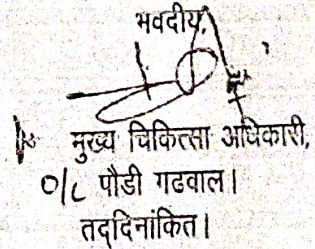 भवदीय,
मुख्य चिकित्सा अधिकारी,
O/c पौडी गढवाल।
तद्दिनांकित।